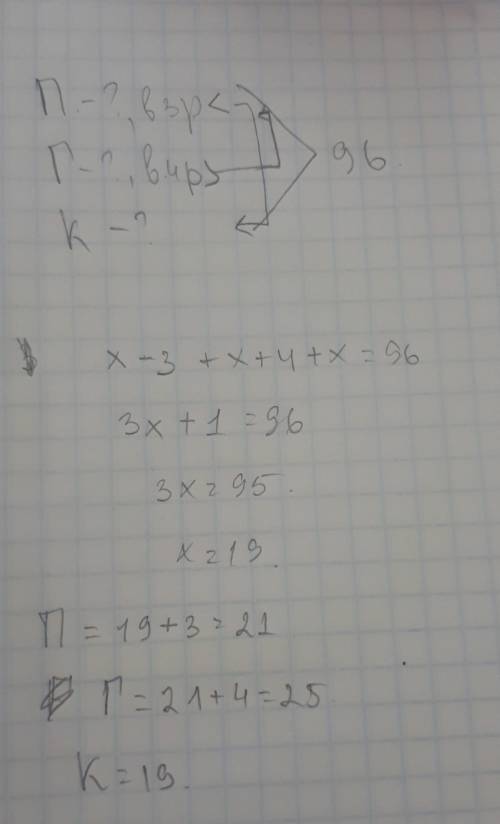 П. - ?, в 3р <
Г - ?, в 4р >
К - ?
96.
x - 3 + x + 4 + x = 96
3x + 1 = 96
3x = 95.
x = 19.
П = 19 + 3 = 21
Г = 21 + 4 = 25
К = 19.